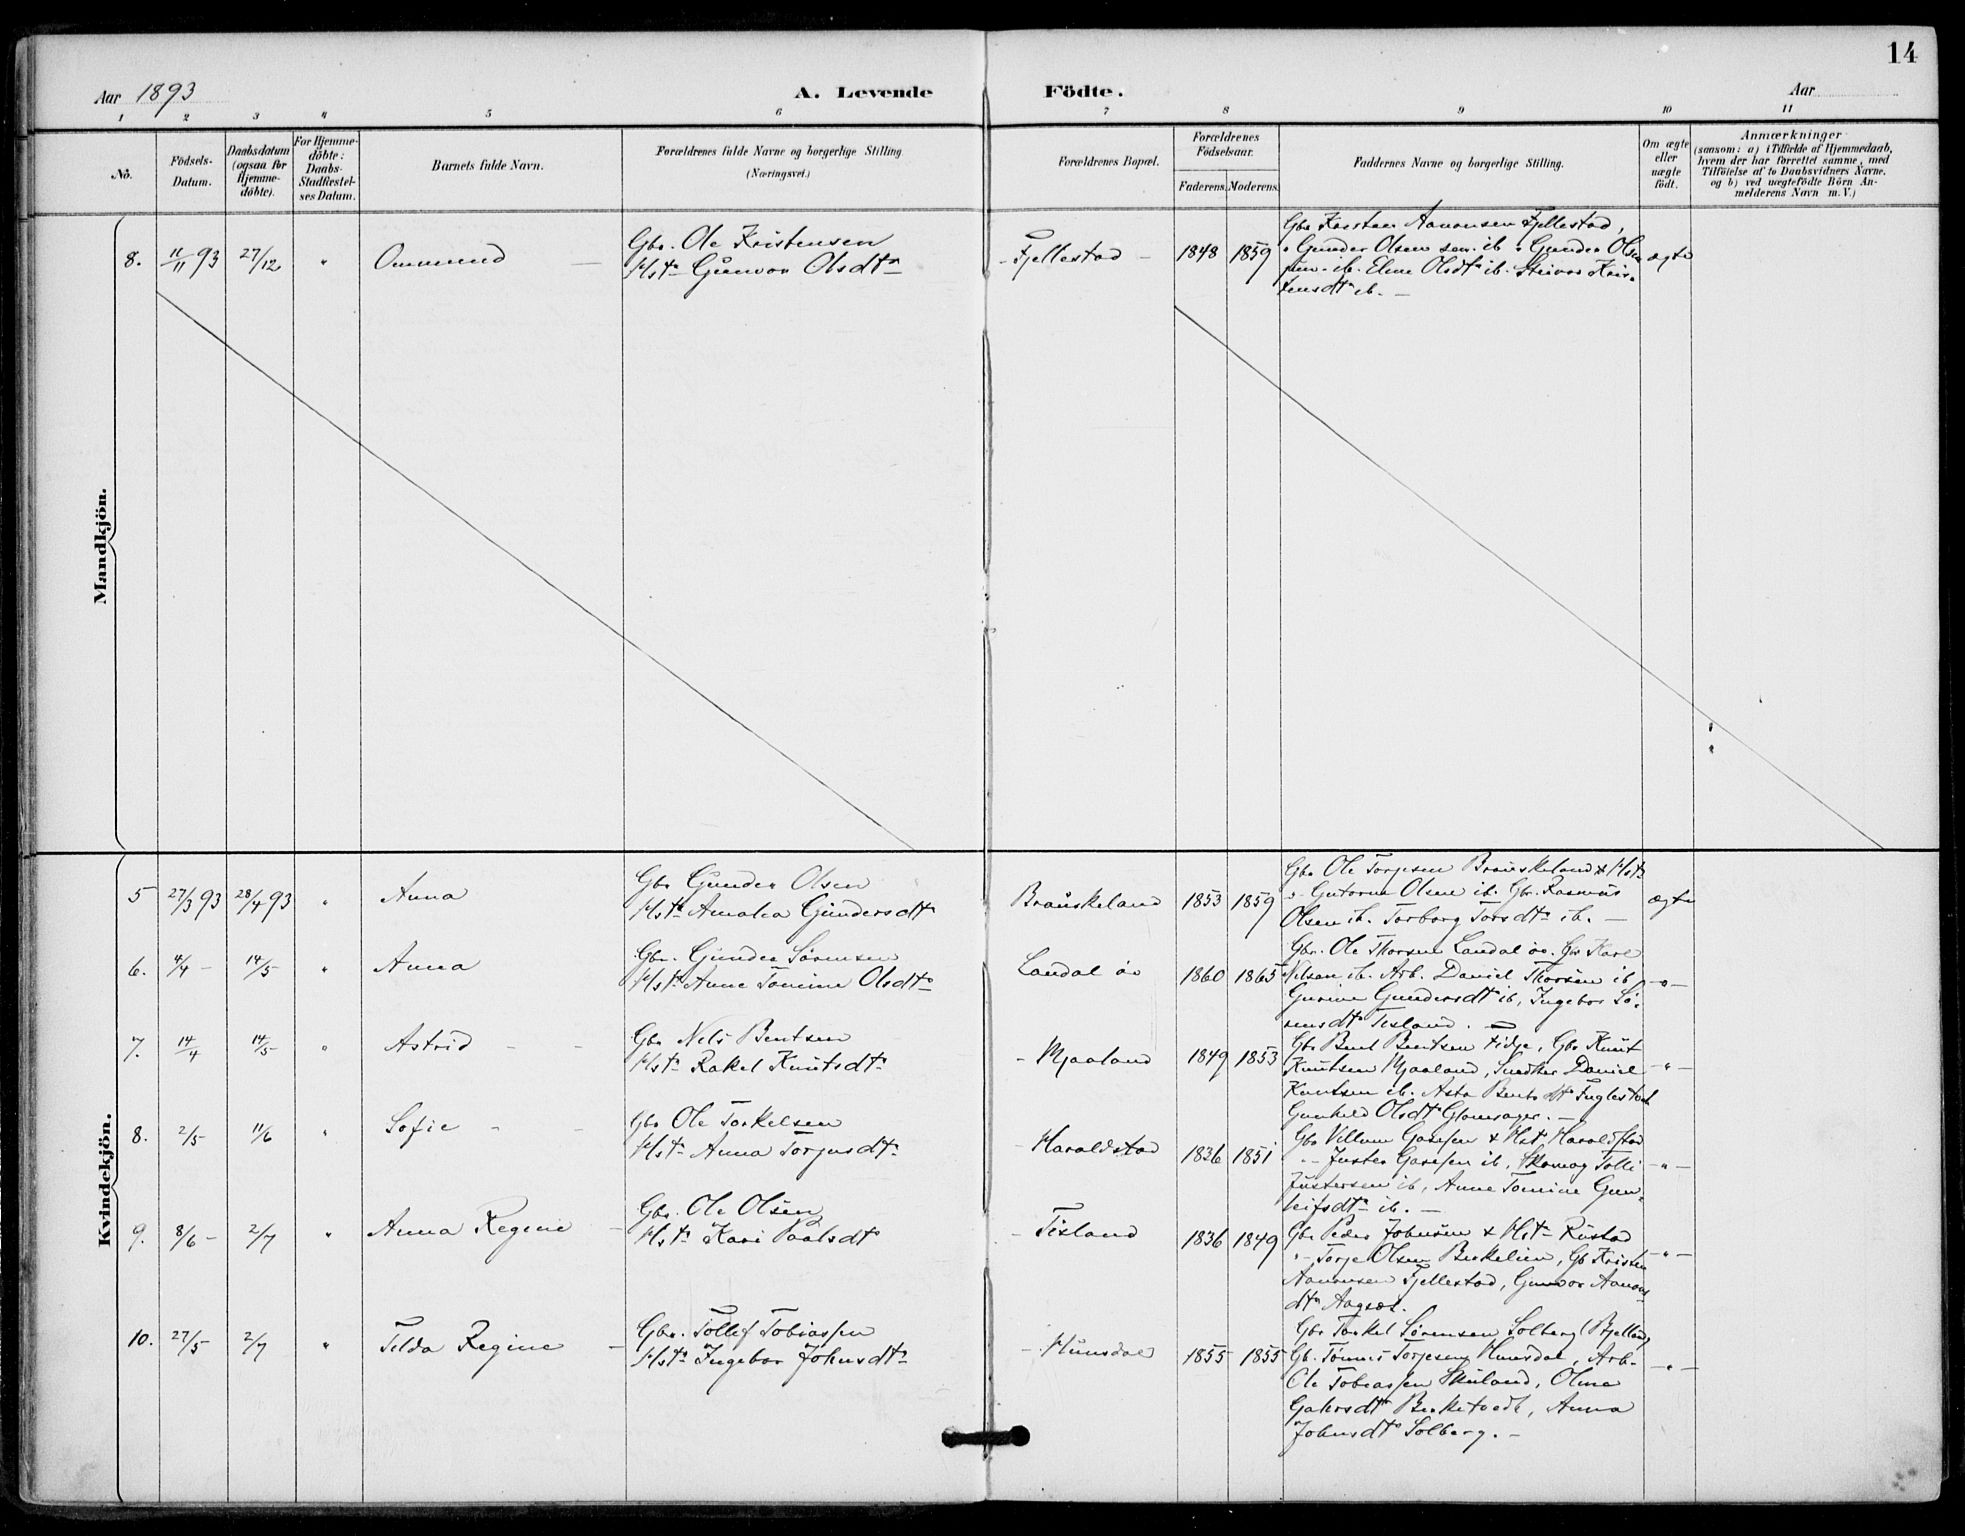 14
Aar 1893 A. Levende Födte. Aar
1 2 3 4 5 6 7 8 9 10 11
No.
Födsels-Datum.
Daabsdatum (ogsaa for Hjemme-döbte).
For Hjemme-döbte: Daabs-Stadfæstel-ses Datum.
Barnets fulde Navn.
Forældrenes fulde Navne og borgerlige Stilling (Næringsvei.)
Forældrenes Bopæl.
Forældrenes Födselsaar.
Faderens. Moderens.
Faddernes Navne og borgerlige Stilling.
Om ægte eller uægte födt.
Anmærkninger
(saasom: a) i Tilfælde af Hjemmedaab,
hvem der har forrettet samme, med
Tilföielse af to Daabsvidners Navne.
og b) ved uægtefödte Börn An-
melderens Navn m. V.)
Mandkjön.
8. 11/11 93 27/12 " Ommund —
Gbr. Ole Kristensen
Hstr Gunvor Olsdtr
- Fjellestad - 1848 1859
Gbr Karsten Aanonsen Fjellestad,
" Gunder Olsen sen. ib " Gunder Olsen
jun. ib. Elene Olsdtr ib. Steivor Kris-
tensdtr ib. —
ægte
Kvindekjön.
5 27/3 93 28/4 93 " Anna
Gbr Gunder Olsen
Hstr Amalia Gundersdtr
Brauskeland 1853 1859
Gbr Ole Torjesen Brauskeland & Hstr
" Guttorm Olsen ib. Gbr. Rasmus
Olsen ib. Torborg Torsdtr ib. —
ægte
6. 4/4 - 14/5 " Anna
Gbr. Gunder Sørensen
Hstr Anne Tomine Olsdtr
Landal øv 1860 1865
Gbr. Ole Thorsen Landal øv. Gbr Karl
Nilsen ib. Arb. Daniel Thorsen ib
Gurine Gundersdtr ib, Ingebor Sø-
rensdtr Tisland. —
-"-
7. 14/4 14/5 " Astrid - -
Gbr Nels Bentsen
Hstr Rakel Knutsdtr
- Mjaaland 1849 1853
Gbr Bent Bentsen Fidje, Gbr Knut
Knutsen Mjaaland, Snedker Daniel
Knutsen ib. Asta Bentsdtr Fuglestad
Gunhild Olsdtr Glomsager. —
-"-
8. 2/5 11/6 " Sofie - -
Gbr Ole Torkelsen
Hstr Anna Torjusdtr
- Haraldstad 1836 1851
Gbr Villum Hstr Haraldstad
"- Juster ib, Skomag Tolli
Justersen ib, Anne Tomine Gun-
leifsdtr ib. —
-"-
9. 8/6 - 2/7 " Anna Regine -
Gbr. Ole Olsen
Hstr Kari Paalsdtr
- Tisland 1836 1849
Gbr Peder Johnsen & Hstr Rustad
"- Torje Olsen Birkelien, Gb Kristen
Aanonsen Fjellestad, Gunvor Aanons-
dtr
-"-
10. 27/5 2/7 " Tilda Regine -
Gbr. Tollef Tobiassen
Hstr Ingebor Johnsdtr
- Hunsdal 1855 1855
Gbr Torkel Sørensen Solberg (Bjelland)
Gb. Tønnes Torjesen Hunsdal, Arb-
Ole Tobiassen Skuland, Oline
Birketvedt, Anna
Johnsdtr Solberg. -
-"-